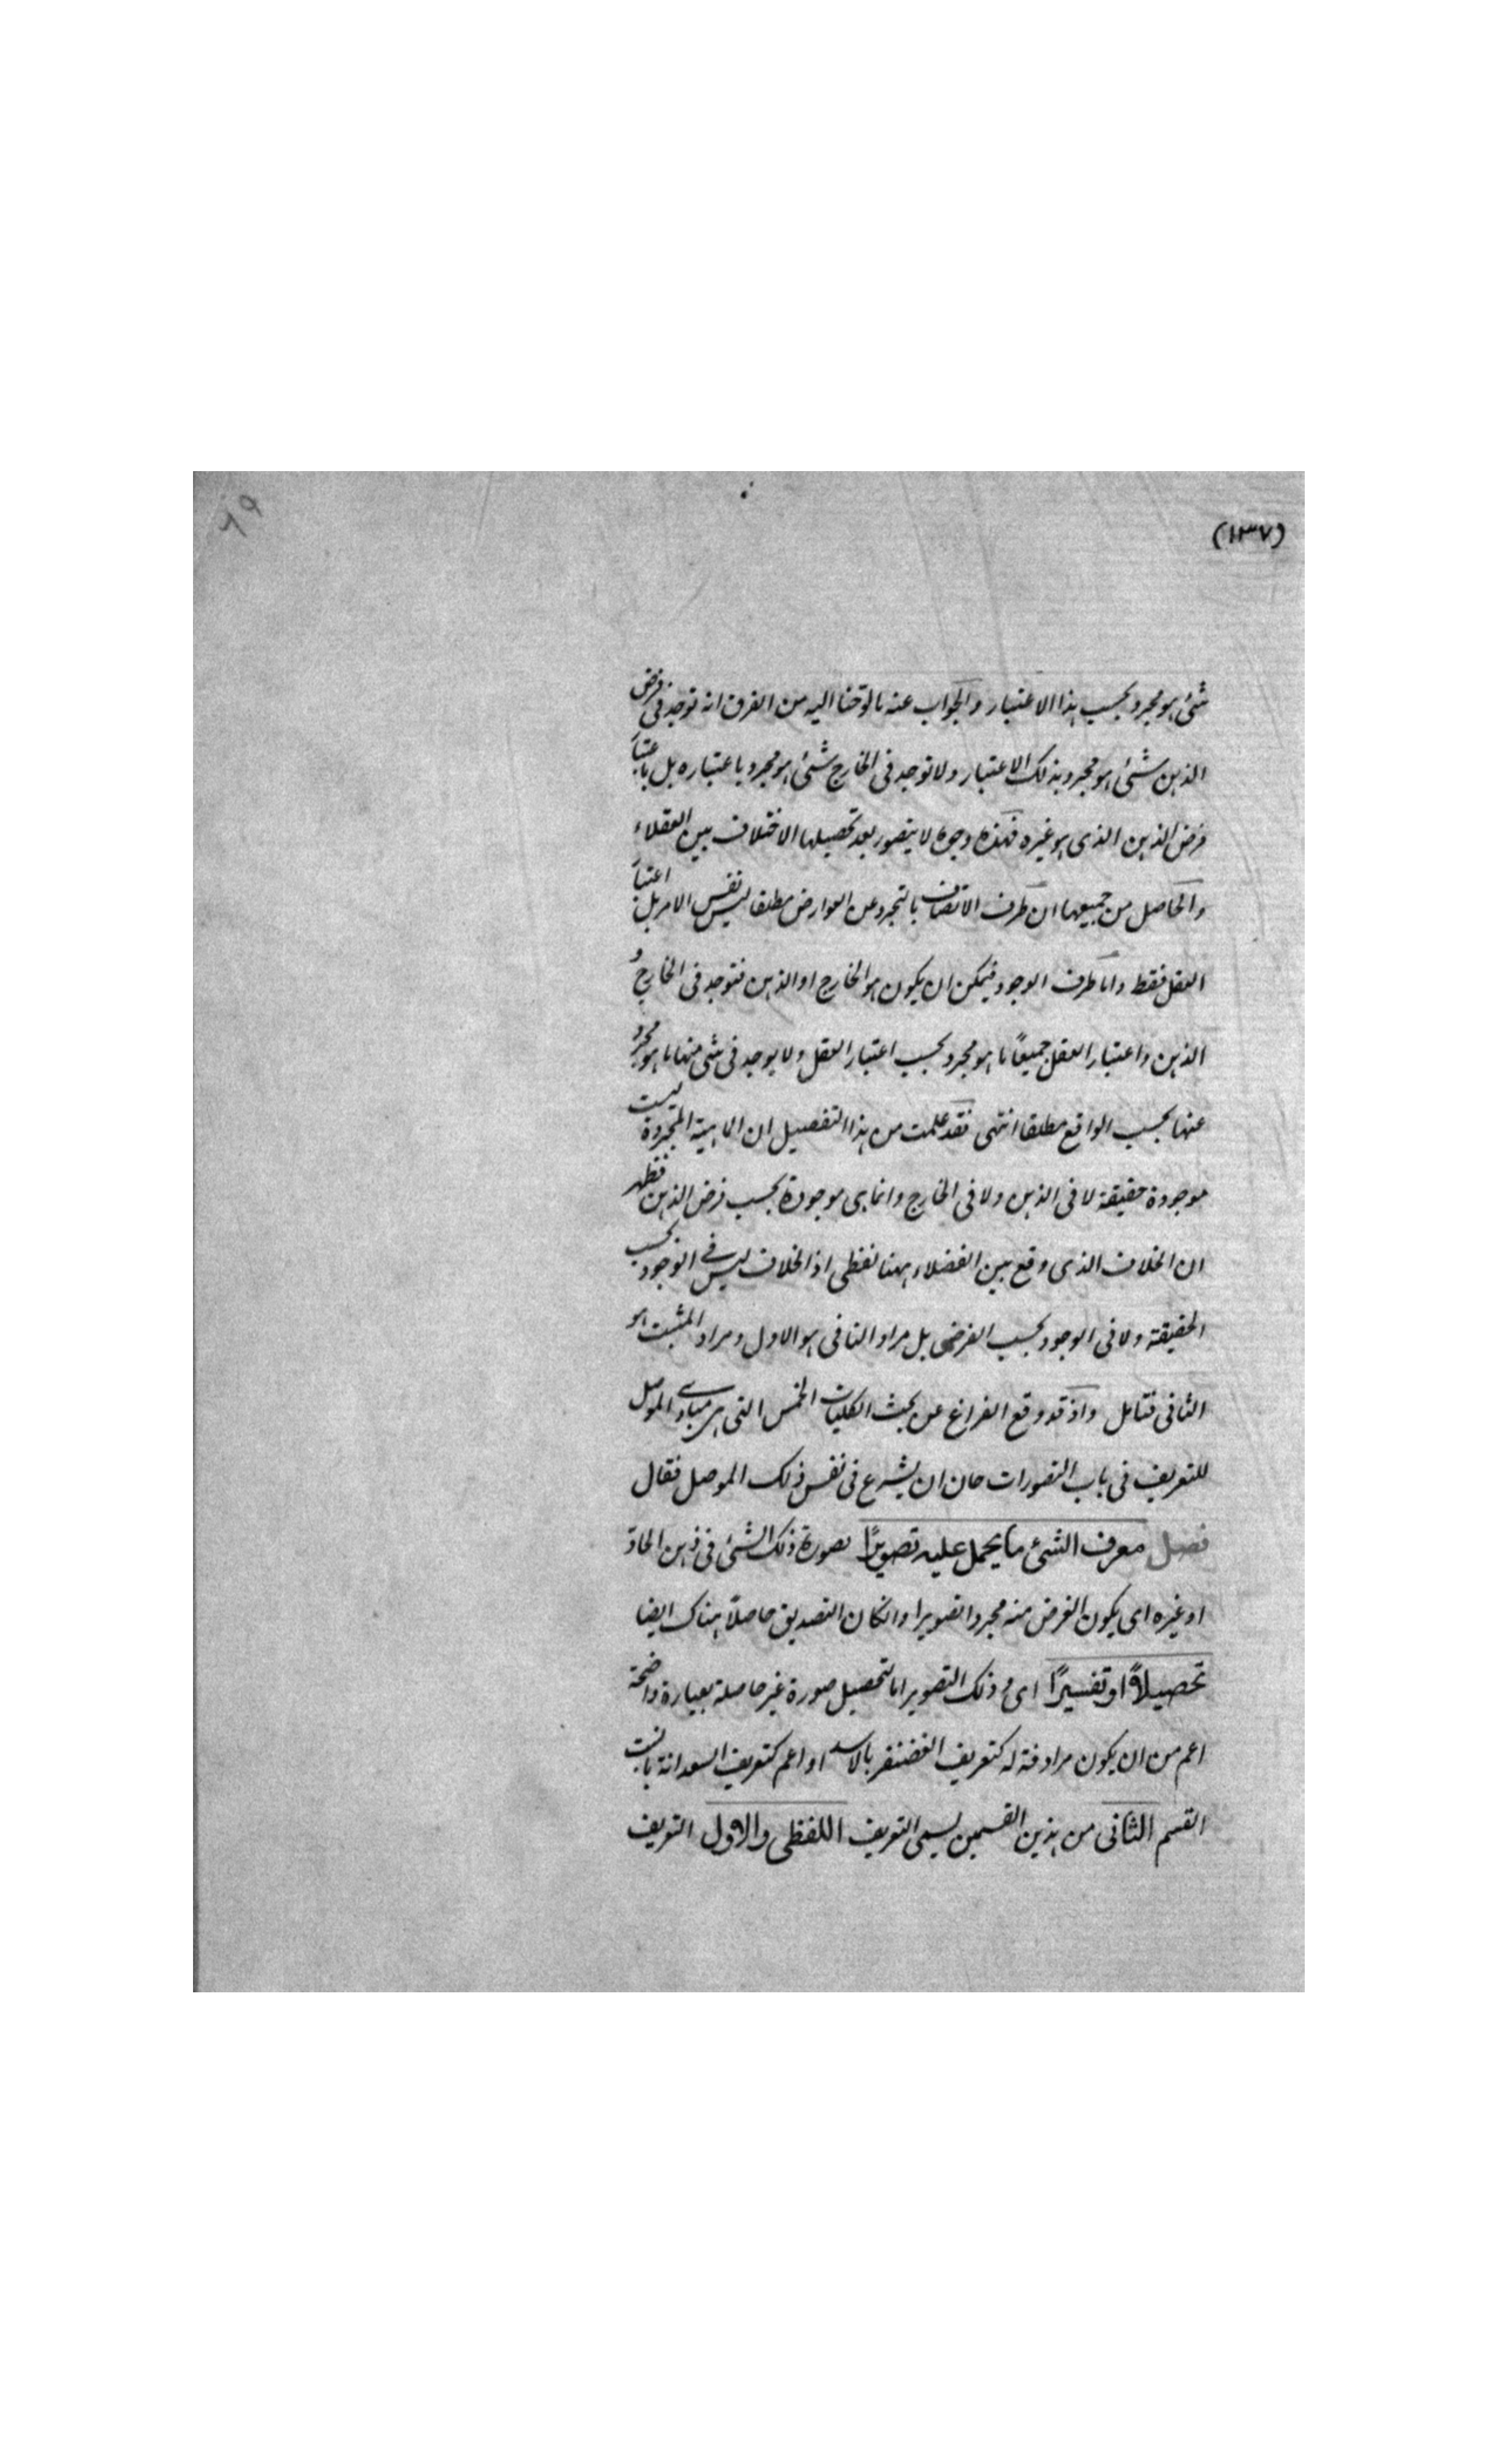 (١٣٧)
٦٩
شئ هو مجرد بحسب هذا الاعتبار والجواب عنه ما لوحنا اليه من الفرق انه توجد فى فرض
الذهن شئ هو مجرد بذلك الاعتبار ولا توجد فى الخارج شئ هو مجرد باعتباره بل باعتبا
فرض الذهن الذى هو غيره فهذه وجوه لا يتصور بعد تحصيلها الاختلاف بين العقلاء
والحاصل من جميعها ان ظرف الاتصاف بالتجرد عن العوارض مطلقا ليس نفس الامر بل اعتبا
العقل فقط واما ظرف الوجود فيمكن ان يكون هو الخارج او الذهن فتوجد فى الخارج و
الذهن واعتبار العقل جميعًا ما هو مجرد بحسب اعتبار العقل ولا يوجد فى شئ منها ما هو مجرد
عنها بحسب الواقع مطلقا انتهى فقد علمت من هذا التفصيل ان الماهية المتجردة ليست
موجودة حقيقة لا فى الذهن ولا فى الخارج وانما هى موجودة بحسب فرض الذهن فظهر
ان الخلاف الذى وقع بين الفضلاء ههنا لفظى اذ الخلاف ليس فى الوجود بحسب
الحقيقة ولا فى الوجود بحسب الفرض بل مراد النافى هو الاول ومراد المثبت هو
الثانى فتامل واذ قد وقع الفراغ عن بحث الكليات الخمس التى هى مبادى الموصل
للتعريف فى باب التصورات حان ان يشرع فى نفس ذلك الموصل فقال
فصل معرف الشئ ما يحمل عليه تصويرًا بصورة ذلك الشئ فى ذهن الحاد
او غيره اى يكون الغرض منه مجرد التصوير وانكان التصديق حاصلاً هناك ايضا
تحصيلاً او تفسيرًا اى وذلك التصوير اما لتحصيل صورة غير حاصلة بعبارة واضحة
اعم من ان يكون مرادفة له كتعريف الغضنفر بالاسد او اعم كتعريف السعدانة بالنبت
القسم الثانى من هذين القسمين يسمى التعريف اللفظى والاول التعريف